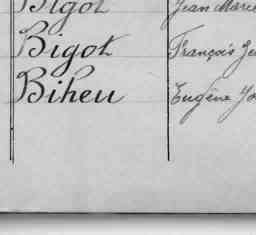 Bigot Jean Marie
Bigot François Je
Biheu Eugène Jo